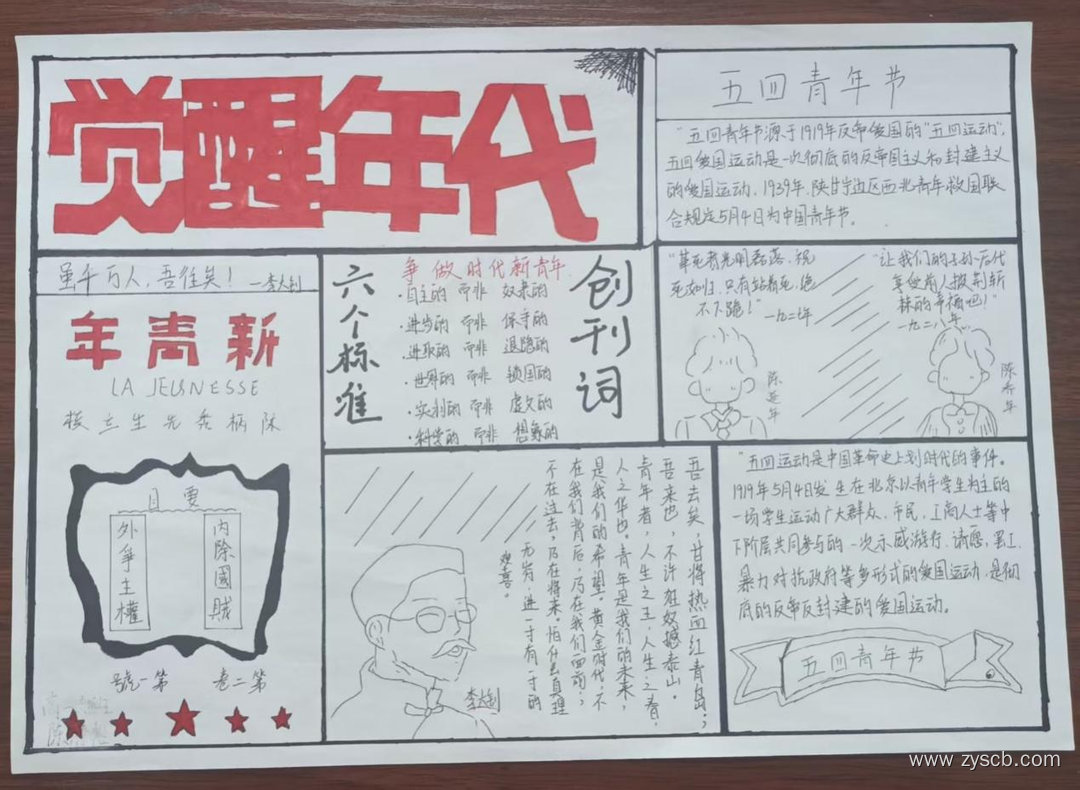 觉醒年代
五四青年节
"五四青年节源于1919年反帝爱国的"五四运动",
五四爱国运动是一次彻底的反帝国主义和封建主义
的爱国运动. 1939年,陕甘宁边区西北青年救国联
合规定5月4日为中国青年节。
虽千万人,吾往矣! —李大钊
年青新
LA JEUNESSE
撰立生先秀柄陈
目要
外争主權
内除國賊
號一第 卷二第
六个标准
争做时代新青年
·自主的 而非 奴隶的
·进步的 而非 保守的
·进取的 而非 退隐的
·世界的 而非 锁国的
·实利的 而非 虚文的
·科学的 而非 想象的
创刊词
"革命者光明磊落、视
死如归,只有站着死,绝
不下跪!"
一九二七年
陈延年
"让我们的子孙后代
享受前人披荆斩
棘的幸福吧!"
一九二八年
陈乔年
吾去矣,甘将热血红青岛;
吾来也,不许狂奴撼泰山。
青年者,人生之王,人生之春,
人之华也。青年是我们的未来,
是我们的希望。黄金时代,不
在我们背后,乃在我们面前;
不在过去,乃在将来。怕什么真理
无穷,进一寸有一寸的
欢喜。
李大钊
"五四运动是中国革命史上划时代的事件。
1919年5月4日发生在北京以青年学生为主的
一场学生运动广大群众、市民、工商人士等中
下阶层共同参与的一次示威游行、请愿,罢工、
暴力对抗政府等多形式的爱国运动,是彻
底的反帝反封建的爱国运动。
五四青年节
www.zyscb.com